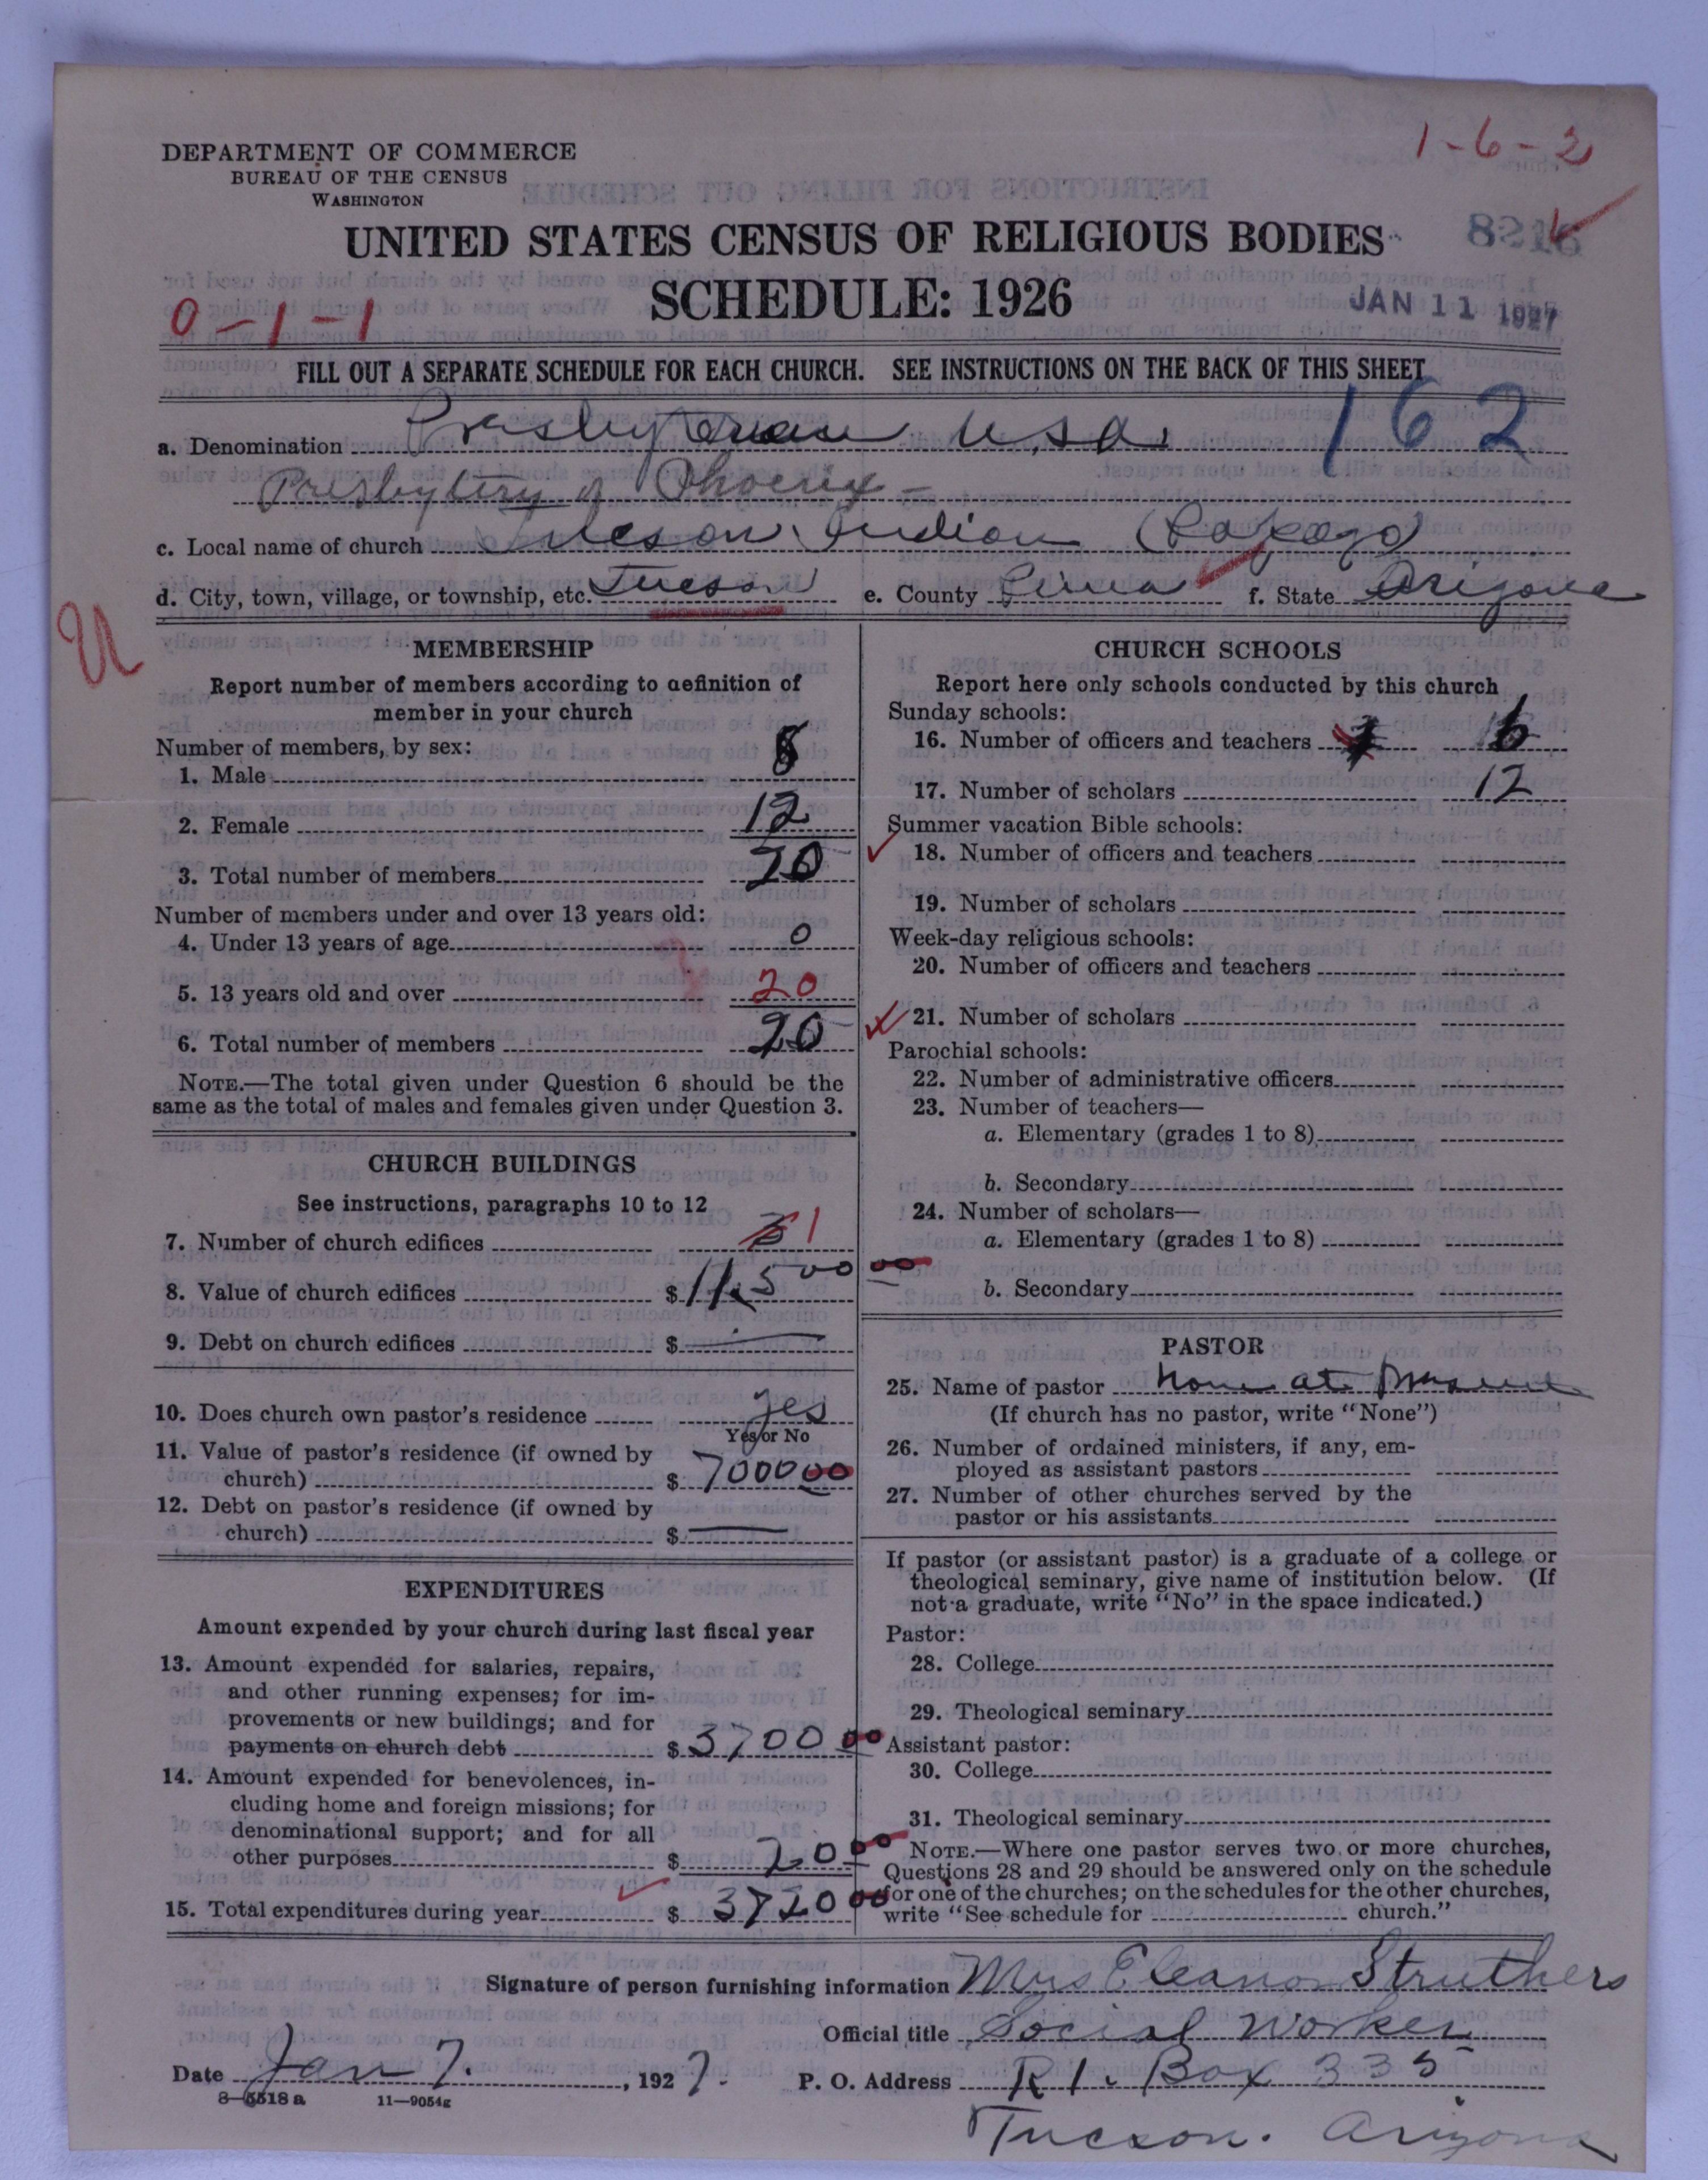 1-6-2
DEPARTMENT OF COMMERCE
BUREAU OF THE CENSUS
WASHINGTON
UNITED STATES CENSUS OF RELIGIOUS BODIES
SCHEDULE: 1926
0-1-1
JAN 11 1927
FILL OUT A SEPARATE SCHEDULE FOR EACH CHURCH. SEE INSTRUCTIONS ON THE BACK OF THIS SHEET
a. Denomination Presbyterian U.S.A. 162
Presbytery of Phoenix -
c. Local name of church Tucson Indian (Papago)
d. City, town, village, or township, etc. Tucson e. County Pima f. State Arizona
U
MEMBERSHIP
Report number of members according to definition of
member in your church
Number of members, by sex:
1. Male 8
2. Female 12
3. Total number of members 20
Number of members under and over 13 years old:
4. Under 13 years of age 0
5. 13 years old and over 20
6. Total number of members 20
NOTE.—The total given under Question 6 should be the
same as the total of males and females given under Question 3.
CHURCH BUILDINGS
See instructions, paragraphs 10 to 12
7. Number of church edifices 1
8. Value of church edifices $11,500 00
9. Debt on church edifices $ —
10. Does church own pastor's residence yes
Yes or No
11. Value of pastor's residence (if owned by
church) $7000 00
12. Debt on pastor's residence (if owned by
church) $ —
EXPENDITURES
Amount expended by your church during last fiscal year
13. Amount expended for salaries, repairs,
and other running expenses; for im-
provements or new buildings; and for
payments on church debt $3700 00
14. Amount expended for benevolences, in-
cluding home and foreign missions; for
denominational support; and for all
other purposes $20 00
15. Total expenditures during year $3720 00
CHURCH SCHOOLS
Report here only schools conducted by this church
Sunday schools:
16. Number of officers and teachers 6
17. Number of scholars 12
Summer vacation Bible schools:
18. Number of officers and teachers
19. Number of scholars
Week-day religious schools:
20. Number of officers and teachers
21. Number of scholars
Parochial schools:
22. Number of administrative officers
23. Number of teachers—
a. Elementary (grades 1 to 8)
b. Secondary
24. Number of scholars—
a. Elementary (grades 1 to 8)
b. Secondary
PASTOR
25. Name of pastor None at present
(If church has no pastor, write "None")
26. Number of ordained ministers, if any, em-
ployed as assistant pastors
27. Number of other churches served by the
pastor or his assistants
If pastor (or assistant pastor) is a graduate of a college or
theological seminary, give name of institution below. (If
not a graduate, write "No" in the space indicated.)
Pastor:
28. College
29. Theological seminary
Assistant pastor:
30. College
31. Theological seminary
NOTE.—Where one pastor serves two or more churches,
Questions 28 and 29 should be answered only on the schedule
for one of the churches; on the schedules for the other churches,
write "See schedule for church."
Signature of person furnishing information Mrs Eleanor Struthers
Official title Social Worker
Date Jan 7. , 1927. P. O. Address R 1. Box 335
8—5518 a 11—9054g
Tucson. Arizona